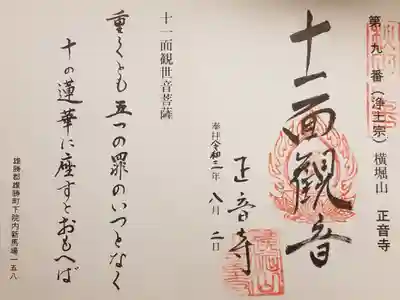 第十九番（浄土宗）横堀山 正音寺
十一面観音
奉拝 令和二年 八月 二日
正音寺
十一面観世音菩薩
重くとも五つの罪のいつとなく
十の蓮華に座すとおもへば
雄勝郡雄勝町下院内新馬場一五八